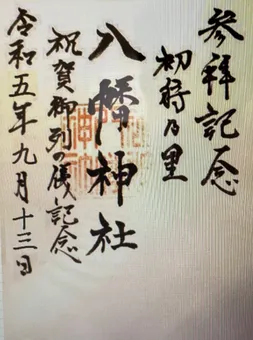 参拝記念
初詣乃里
八幡神社
祝賀御列の儀記念
令和五年九月十三日